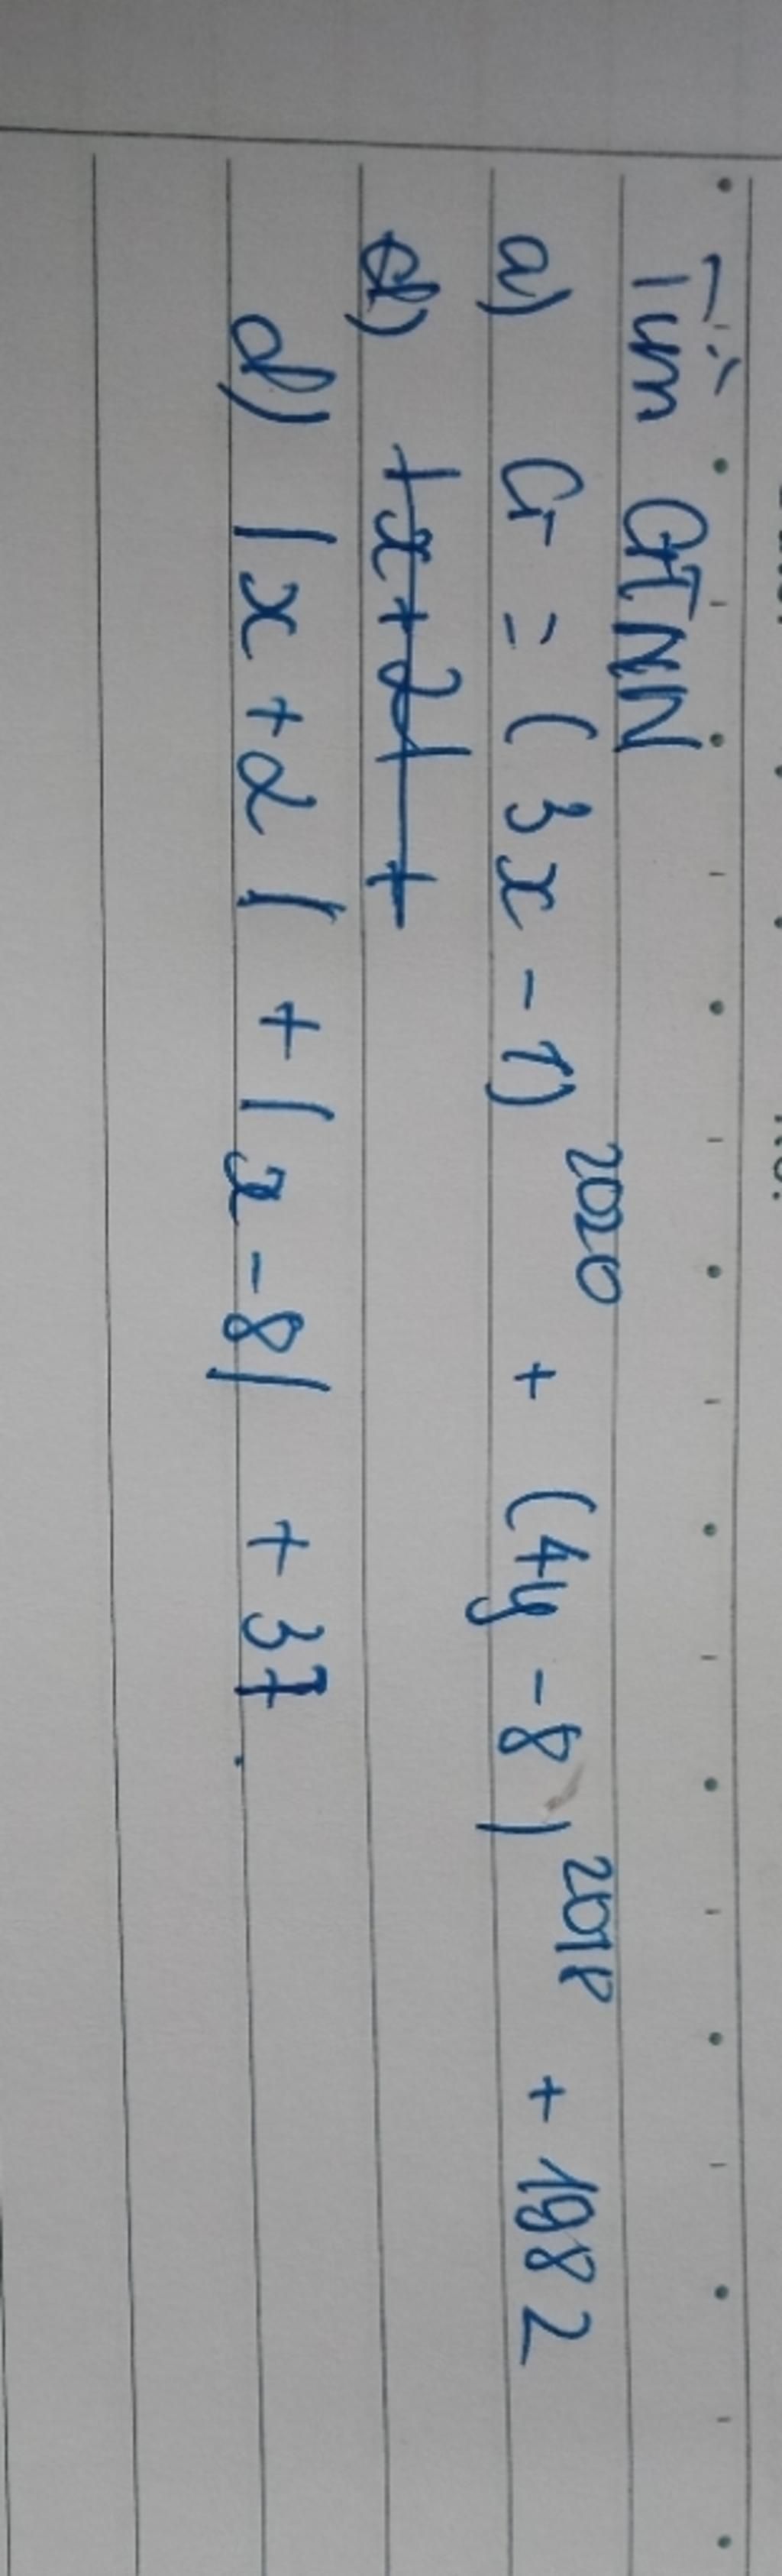 Tìm GTNN
a) G = (3x - 1)^2020 + (4y - 8)^2018 + 1982
d) |x+2| +
d) |x+2| + |x-8| + 37.